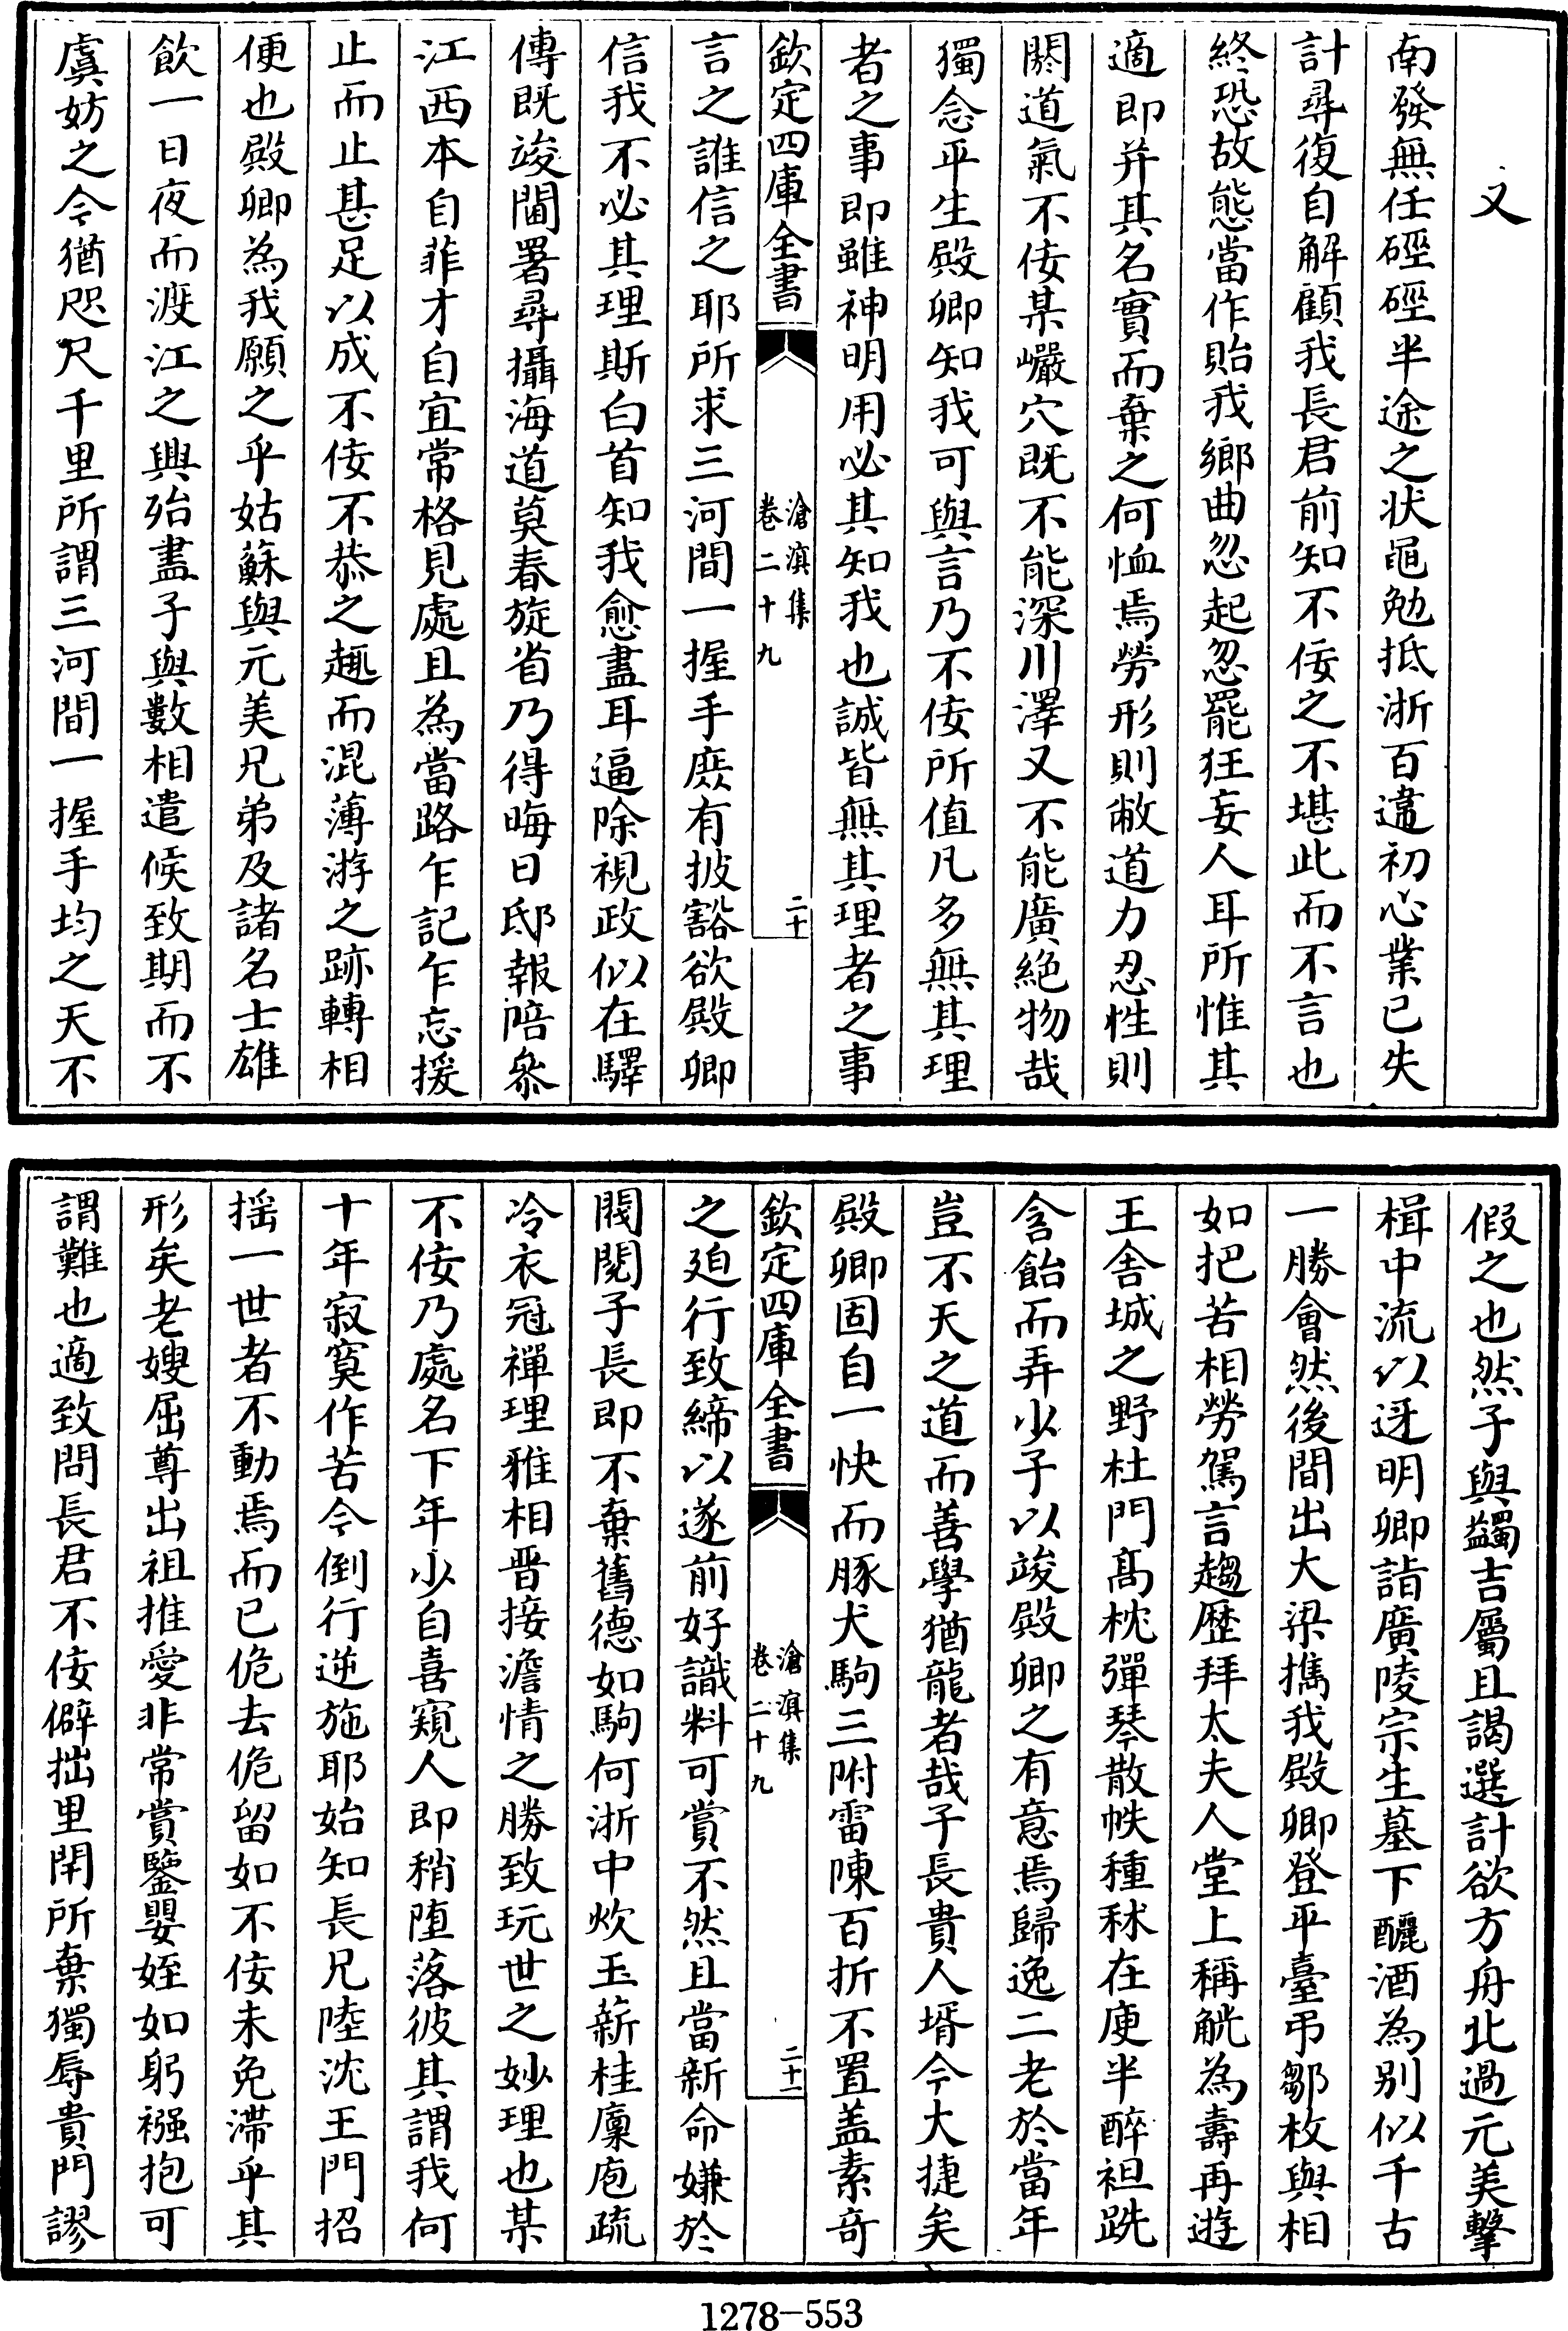 又
南發無任硜硜半途之状黽勉抵浙百違初心業已失
計尋復自解顧我長君前知不佞之不堪此而不言也
終恐故態當作貽我鄉曲忽起忽罷狂妄人耳所惟其
適即并其名實而棄之何恤焉勞形則敝道力忍性則
閼道氣不佞某巖穴既不能深川澤又不能廣絶物哉
獨念平生殿卿知我可與言乃不佞所值凡多無其理
者之事即雖神明用必其知我也誠皆無其理者之事
欽定四庫全書
滄溟集
卷二十九
二十
言之誰信之耶所求三河間一握手庻有披豁欲殿卿
信我不必其理斯白首知我愈盡耳逼除視政似在驛
傳既竣閫署尋攝海道莫春旋省乃得晦日邸報陪叅
江西本自菲才自宜常格見處且為當路乍記乍忘援
止而止甚足以成不佞不恭之趣而混薄游之跡轉相
便也殿卿為我願之乎姑蘇與元美兄弟及諸名士雄
飲一日夜而渡江之興殆盡子與數相遣候致期而不
虞妨之今猶咫尺千里所謂三河間一握手均之天不
假之也然子與蠲吉屬且謁選計欲方舟北過元美擊
楫中流以迓明卿詣廣陵宗生墓下釃酒為别似千古
一勝會然後間出大梁擕我殿卿登平臺弔鄒枚與相
如把苦相勞駕言趨歴拜太夫人堂上稱觥為壽再遊
王舍城之野杜門髙枕彈琴散帙種秫在庭半醉袒跣
含飴而弄少子以竣殿卿之有意焉歸逸二老於當年
豈不天之道而善學猶龍者哉子長貴人壻今大捷矣
殿卿固自一快而豚犬駒三附雷陳百折不置盖素竒
欽定四庫全書
滄溟集
卷二十九
二十一
之廹行致締以遂前好識料可賞不然且當新命嫌於
閥閲子長即不棄舊德如駒何浙中炊玉薪桂廩庖疏
冷衣冠禪理雅相晋接澹情之勝致玩世之妙理也某
不佞乃處名下年少自喜窺人即稍墮落彼其謂我何
十年寂寞作苦今倒行逆施耶始知長兄陸沈王門招
揺一世者不動焉而已佹去佹留如不佞未免滯乎其
形矣老嫂屈尊出祖推愛非常賞鑒嬰姪如躬襁抱可
謂難也適致問長君不佞僻拙里閈所棄獨辱貴門謬
1278-553